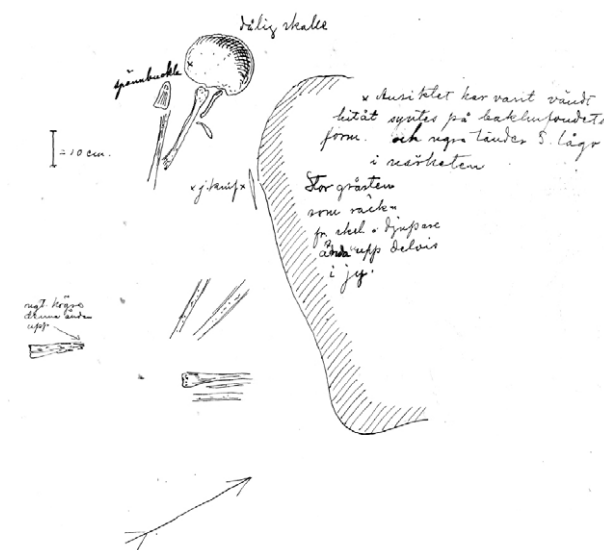 dålig skalle
spännbuckla
= 10 cm.
x Ansiktet har varit vändt
hitåt syntes på bakhufvudets
form. och några tänder s. lågo
i närheten
x jknif x
Stor gråsten
som räck-
fr. skel. o djupare
ända upp delvis
i jy.
högre
denna änden
upp